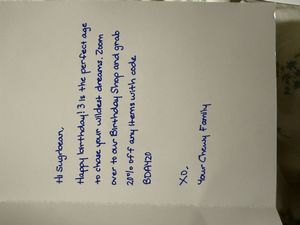 Hi Sugrbean,
Happy birthday! 3 is the perfect age
to chase your wildest dreams. Zoom
over to our Birthday Shop and grab
20% off any items with code
BDAY20
XO,
Your Chewy Family